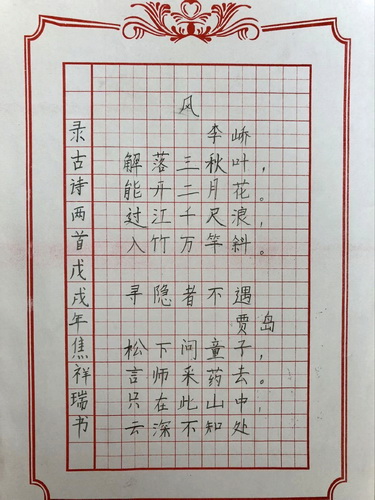 风
李峤
解落三秋叶，
能开二月花。
过江千尺浪，
入竹万竿斜。
寻隐者不遇
贾岛
松下问童子，
言师采药去。
只在此山中，
云深不知处
录古诗两首戊戌年焦祥瑞书